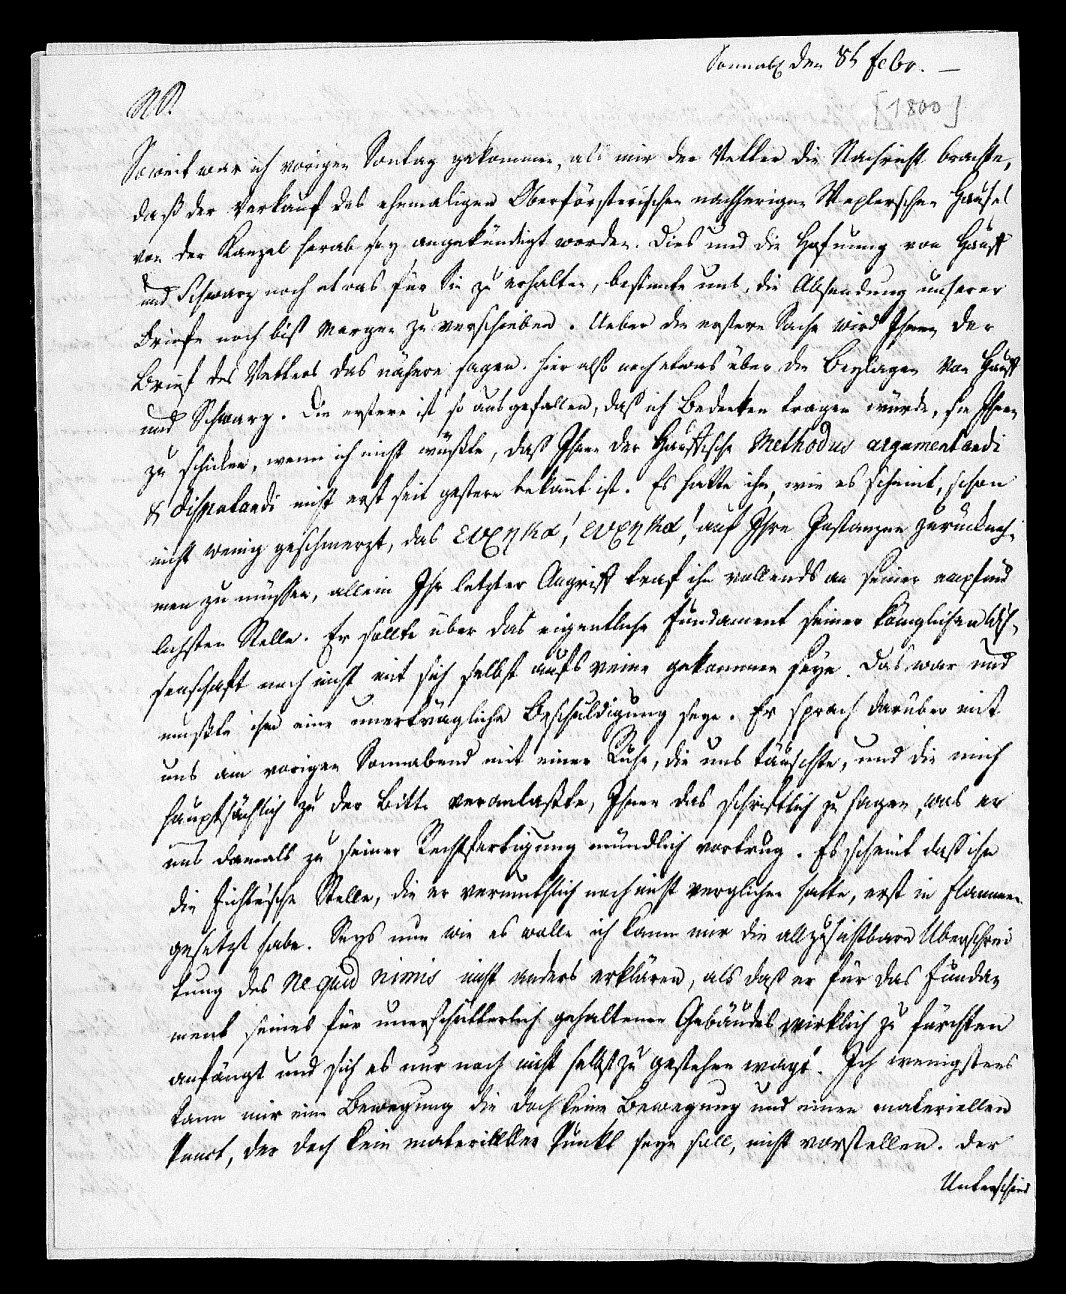 Sonnab. den 8t Febr. —
[1800]
NS.
So weit war ich vorigen Sontag gekommen, als mir der Vetter die Nachricht brachte,
daß der Verkauf des ehmaligen Oberförsterischen nachherigen Weplerschen Hauses
von der Kanzel herab sey angekündigt worden. Dies und die Hofnung von Hauff
und Schwarz noch etwas für Sie zu erhalten, bestimte uns, die Absendung unserer
Briefe noch biß Morgen zu verschieben. Ueber die erstere Sache wird Ihnen der
Brief des Vetters das nähere sagen. Hier also noch etwas über die Beylagen von Hauff
und Schwarz. Die erstere ist so ausgefallen, daß ich Bedenken tragen würde, sie Ihnen
zu schicken, wenn ich nicht wüßte, daß Ihnen der Hauffische Methodus argumentandi
& disputandi nicht erst seit gestern bekant ist. Es hatte ihn, wie es scheint, schon
nicht wenig geschmerzt, das ευρηκα! ευρηκα! auf Ihre Instanzen zurückneh-
men zu müssen, allein Ihr letzter Angriff traf ihn vollends an seiner empfind
lichsten Stelle. Er sollte über das eigentliche Fundament seiner königlichen Wis-
senschaft noch nicht mit sich selbst aufs reine gekommen seyn. Das war und
mußte ihm eine unerträgliche Beschuldigung seyn. Er sprach darüber mit
uns am vorigen Sonnabend mit einer Ruhe, die uns täuschte, und die mich
hauptsächlich zu der Bitte veranlaßte, Ihnen das schriftlich zu sagen, was er
uns damals zu seiner Rechtfertigung mündlich vortrug. Es scheint daß ihn
die Fichtesche Stelle, die er vermuthlich noch nicht verglichen hatte, erst in Flammen
gesetzt habe. Seys nun wie es wolle ich kann mir die allzusichtbare Überschrei
tung des Ne quid nimis nicht anders erklären, als daß er für das Funda-
ment seines für unerschütterlich gehaltenen Gebäudes wirklich zu fürchten
anfängt und sich es nur noch nicht selbst zu gestehen wagt. Ich wenigstens
kann mir eine Bewegung die doch keine Bewegung und einen materiellen
Punct, der doch kein materieller Punkt seyn soll, nicht vorstellen. Der
Unterschied